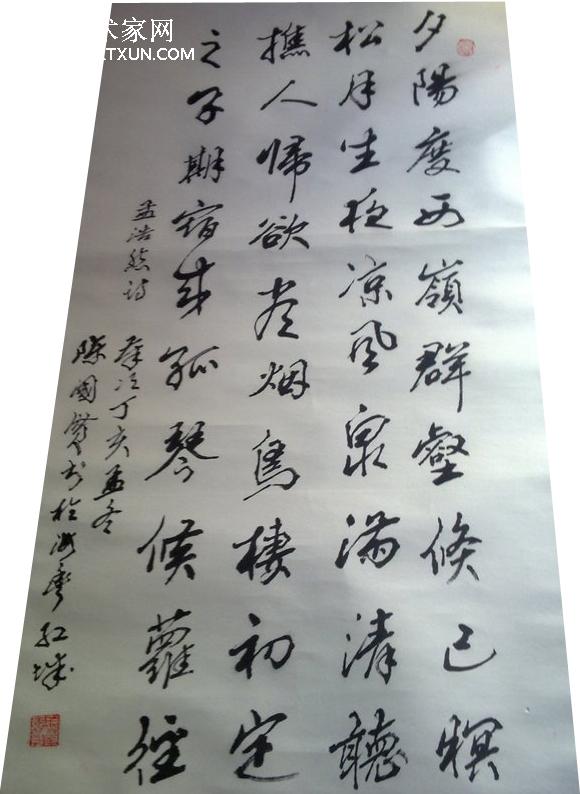 术家网
RTXUN.COM
夕陽度西嶺群壑倏已暝
松月生夜凉風泉满清聽
樵人帰欲尽烟鳥棲初定
之子期宿来孤琴候蘿徑
孟浩然诗
歲次丁亥孟冬
陳國书於红城